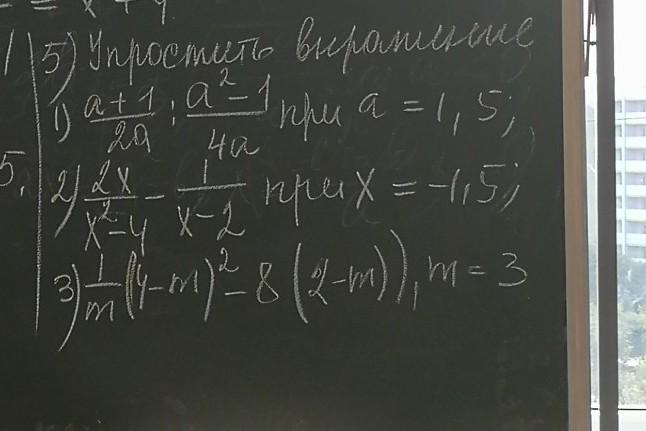 = x + y
5) Упростить выражение
1) (a+1)/(2a) : (a²-1)/(4a) при a = 1,5;
5.
2) (2x)/(x²-4) - 1/(x-2) при x = -1,5;
3) 1/m ((4-m)² - 8(2-m)), m = 3